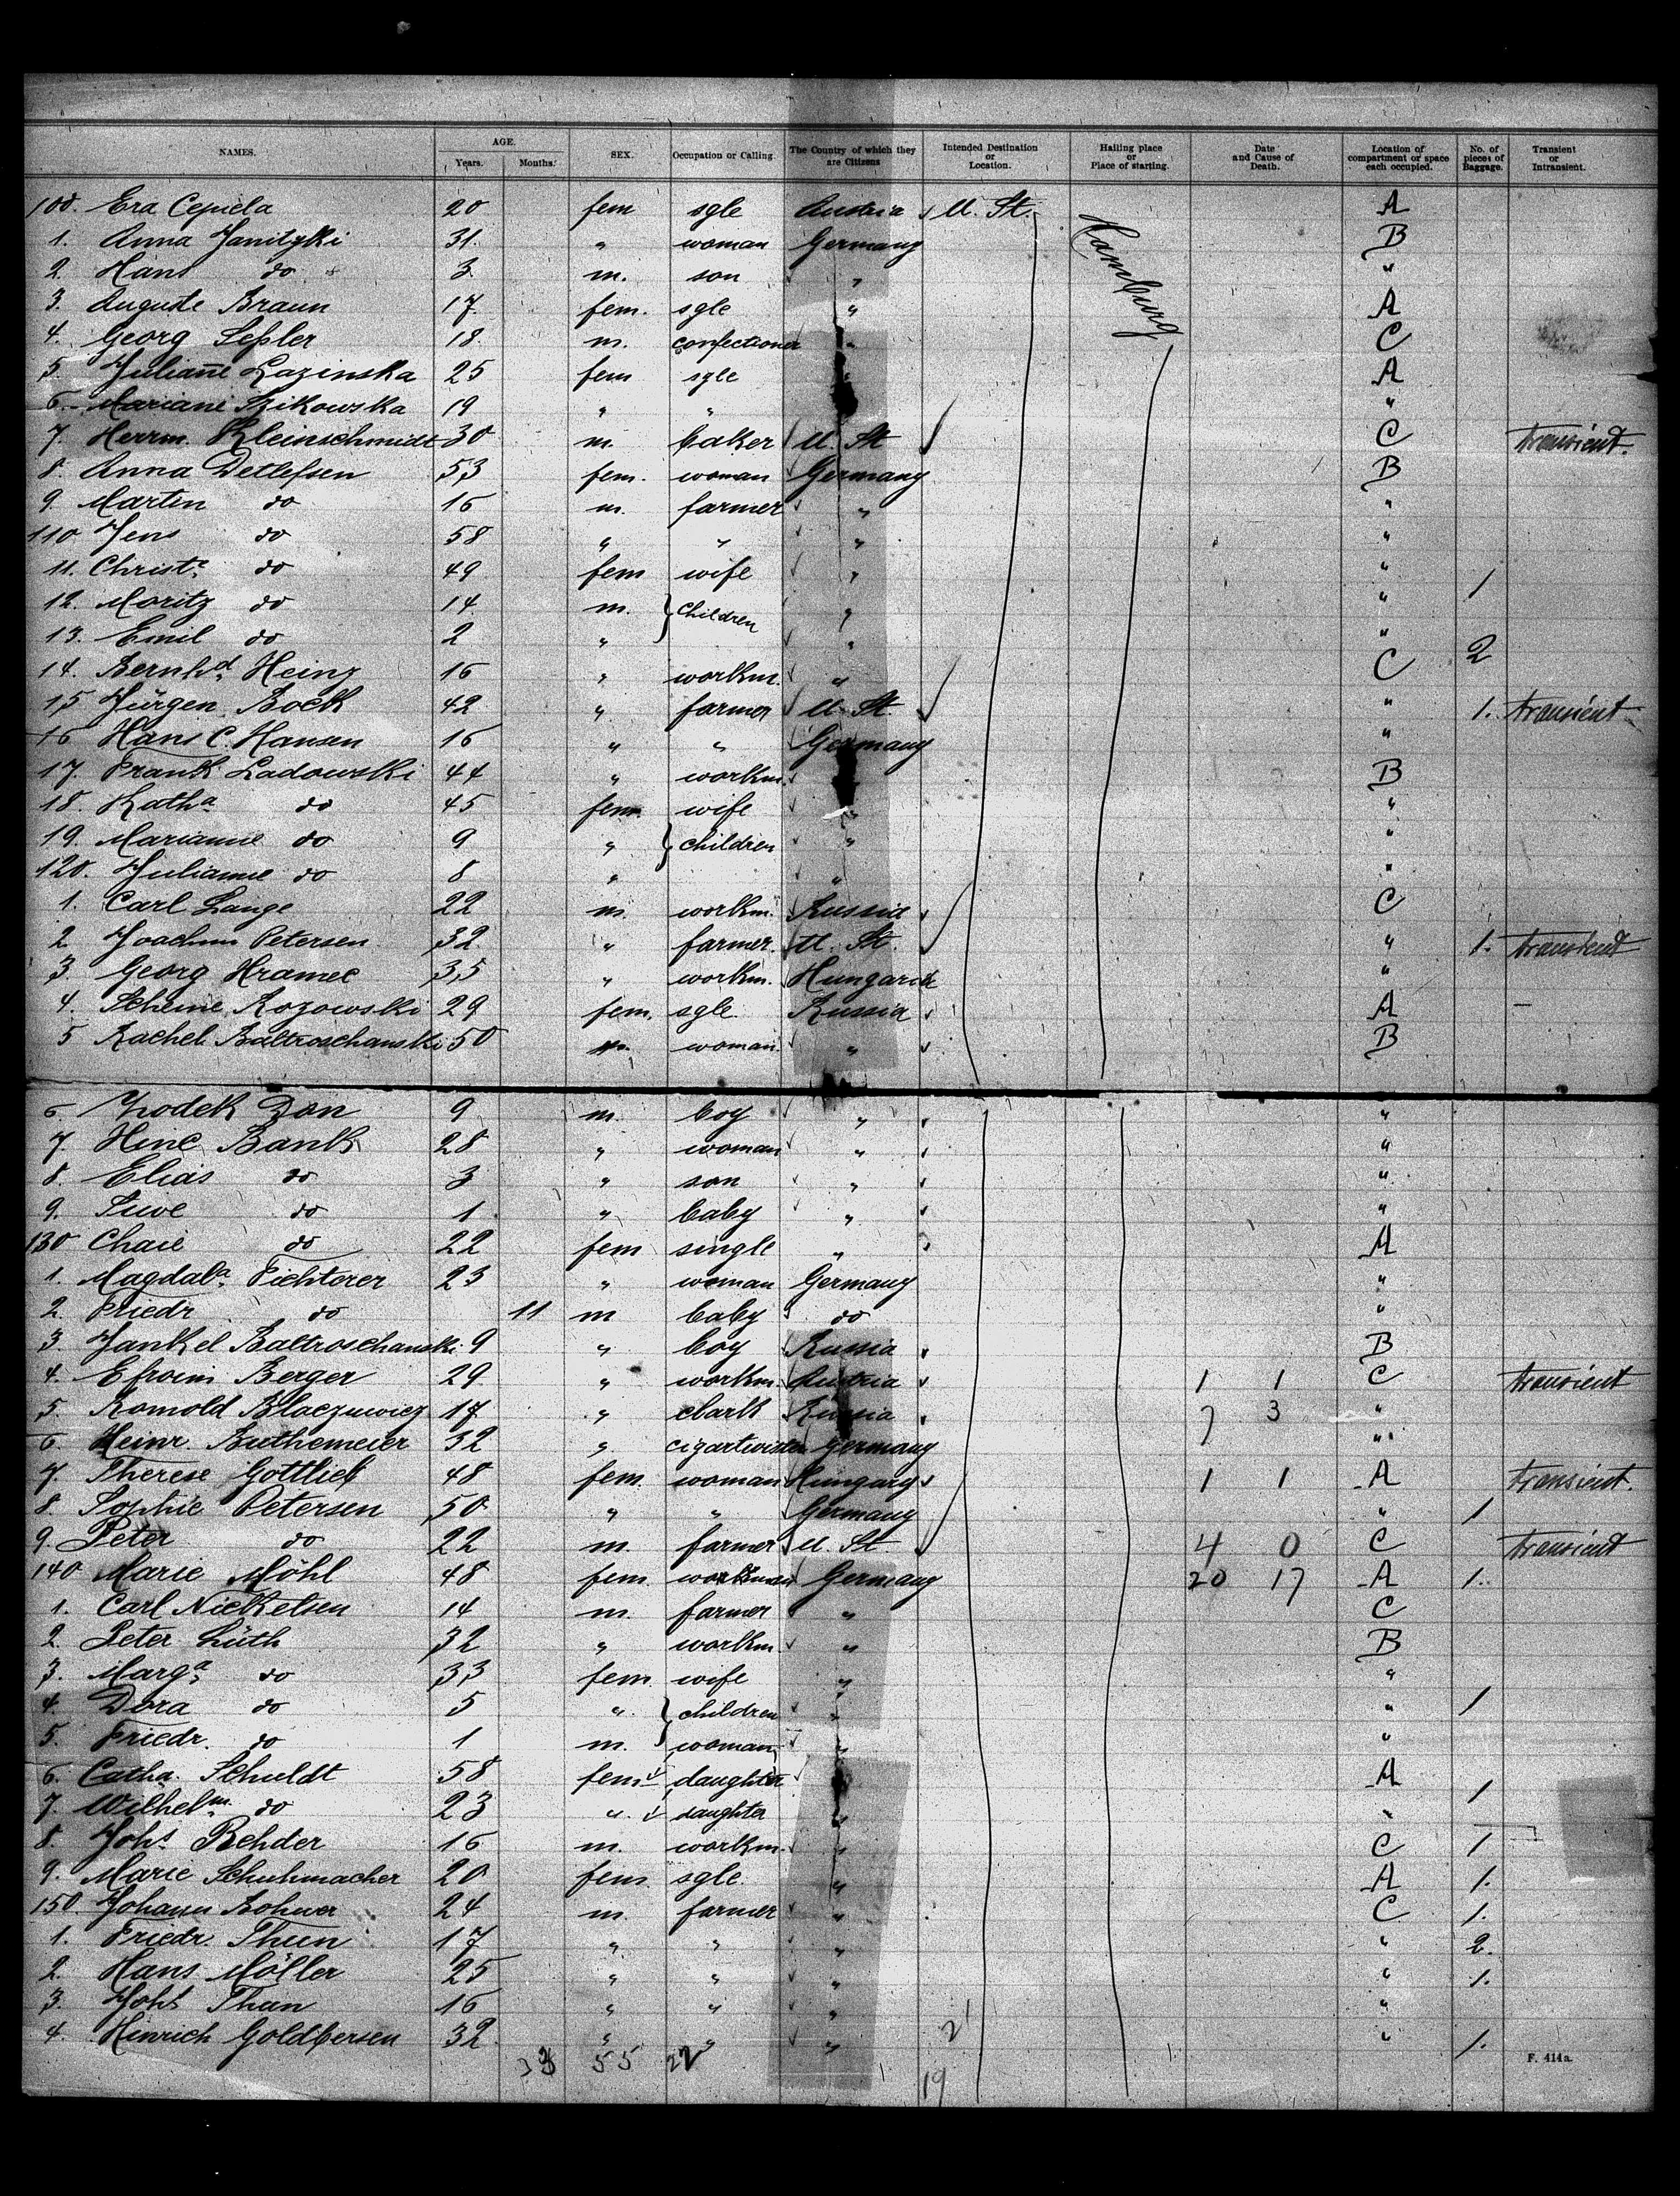 NAMES. AGE. Years. Months. SEX. Occupation or Calling. The Country of which they are Citizens Intended Destination or Location. Hailing place or Place of starting. Date and Cause of Death. Location of compartment or space each occupied. No. of pieces of Baggage. Transient or Intransient.
100. Eva Cepiela 20 fem sgle Austria U. St. Hamburg A
1. Anna 31. " woman Germany B
2. Hans do 3 m. son " "
3. Auguste Braun 17 fem. sgle " A
4. Georg Seßler 18. m. confectioner " C
5. Juliane Lazinska 25 fem sgle " A
6. Mariane 19 " " "
7. Herrm. Kleinschmidt 30 m. baker U. St C transient.
8. Anna Detlefsen 53 fem. woman Germany B
9. Martin do 16 m. farmer " "
110 Jens do 58 " " " "
11. Christ.e do 49 fem wife " " 1
12. Moritz do 14 m. children " "
13. Emil do 2 " " " 2
14. Bernhd. Heinz 16 " workm. " C
15 Jürgen Bock 42 " farmer U. St. " 1. transient
16 Hans C. Hansen 16 " " Germany "
17. Frank Ladowski 44 " workm. B
18. Katha do 45 fem. wife " "
19. Marianne do 9 " children " "
120. Julianne do 8 " " "
1. Carl Lange 22 m. workm. Russia C
2 Joachim Petersen 32 " farmer. U. St. " 1. transient
3. Georg Hramec 35 " workm. Hungaria "
4. Scheine Rozowski 29 fem. sgle. Russia A
5 Rachel Baltroschanski 50 woman. " B
6 Don 9 m. boy " "
7. Hine Bank 28 " woman " "
8. Elias do 3 " son " "
9. do 1 " baby " "
130 Chaie do 22 fem single " A
1. Magdala. Fichterer 23 " woman Germany "
2. Friedr do 11 m baby do "
3. Jankel Baltroschanski 9 " boy Russia B
4. Efroim Berger 29 " workm. Austria 1 1 C transient
5. Romold 17 " clark Russia 7 3 "
6. Heinr. Buthemeier 32 " cigartwister Germany "
7. Therese Gottlieb 48 fem. woman Hungary 1 1 A transient.
8. Sophie Petersen 50 " " Germany " 1
9. Peter do 22 m. farmer U. St 4 0 C transient
140 Marie Möhl 48 fem. Germany 20 17 A 1.
1. Carl Nickelsen 14 m. farmer " C
2. Peter Lüth 32 " workm " B
3. Marga. do 33 fem. wife " "
4. Dora do 5 " children " " 1
5. Friedr. do 1 m. woman " "
6. Catha. Schuldt 58 fem daughter A 1
7. Wilhelm. do 23 " daughter " "
8. Johs. Rehder 16 m. workm. " C 1
9. Marie Schuhmacher 20 fem. sgle. " A 1.
150. Johann 24 m. farmer " C 1.
1. Friedr. Thun 17 " " " " 2.
2. Hans Möller 25 " " " " 1.
3. Johs Thun 16 " " " "
4. Hinrich 32 " " " " 1.
55 22 19 2
F. 414a.